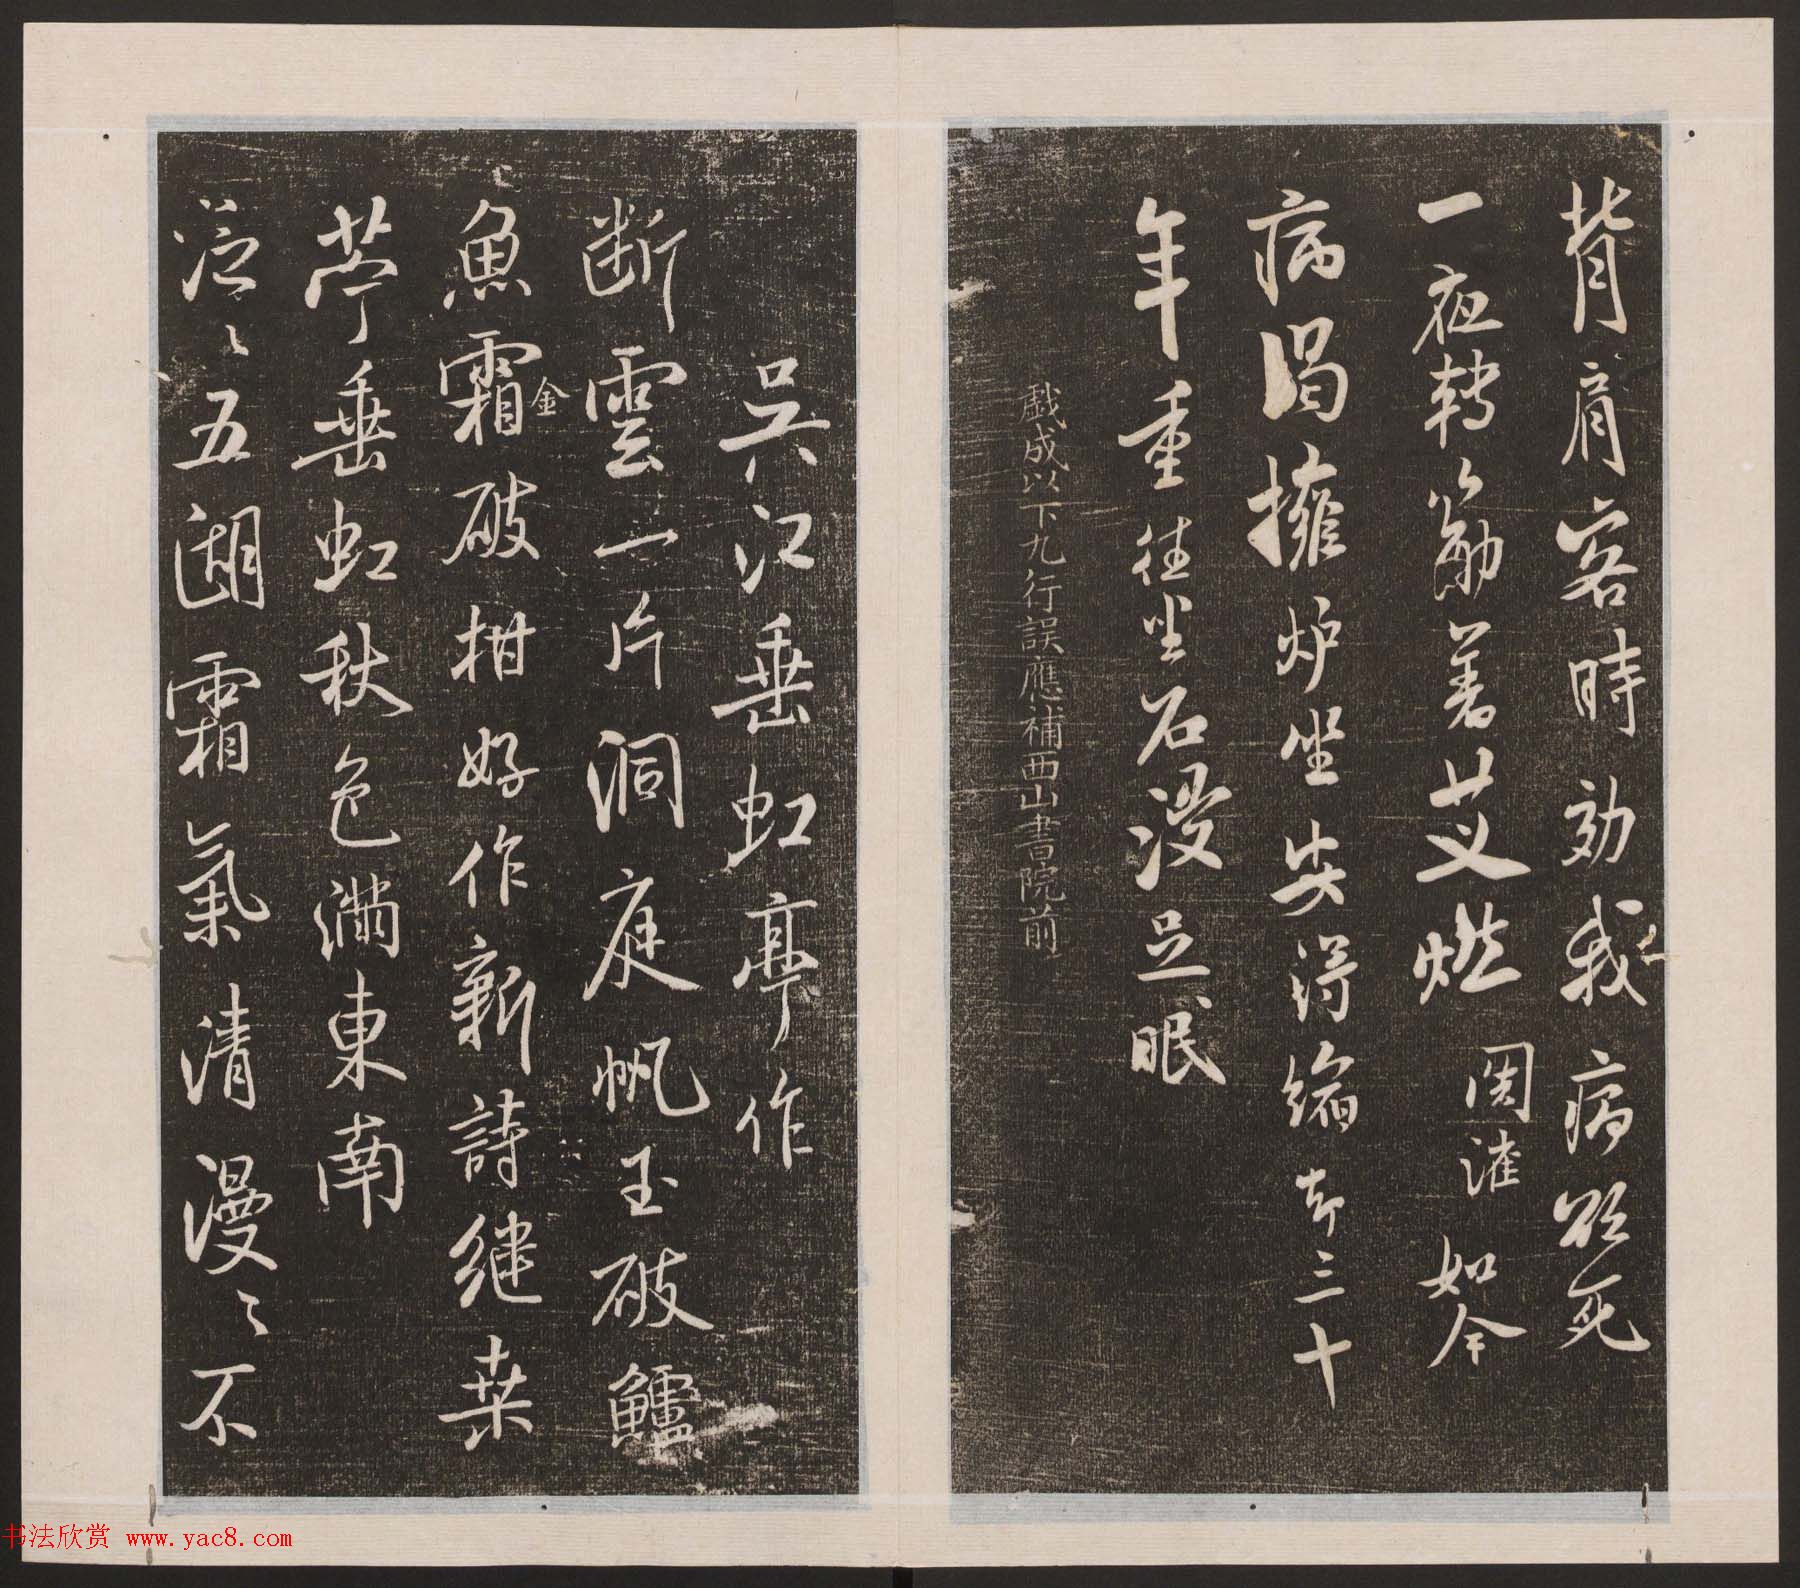 背肩客時効我病欲死
一夜轉筋著艾燃関灌如今
病渴擁炉坐安得縮却三十
年重往坐石浸足眠
戲成以下九行誤應補西山書院前
吳江垂虹亭作
断雲一片洞庭帆玉破鱸
魚霜破柑好作新詩繼桑
金
苧垂虹秋色滿東南
泛々五湖霜氣清漫々不
书法欣赏 www.yac8.com